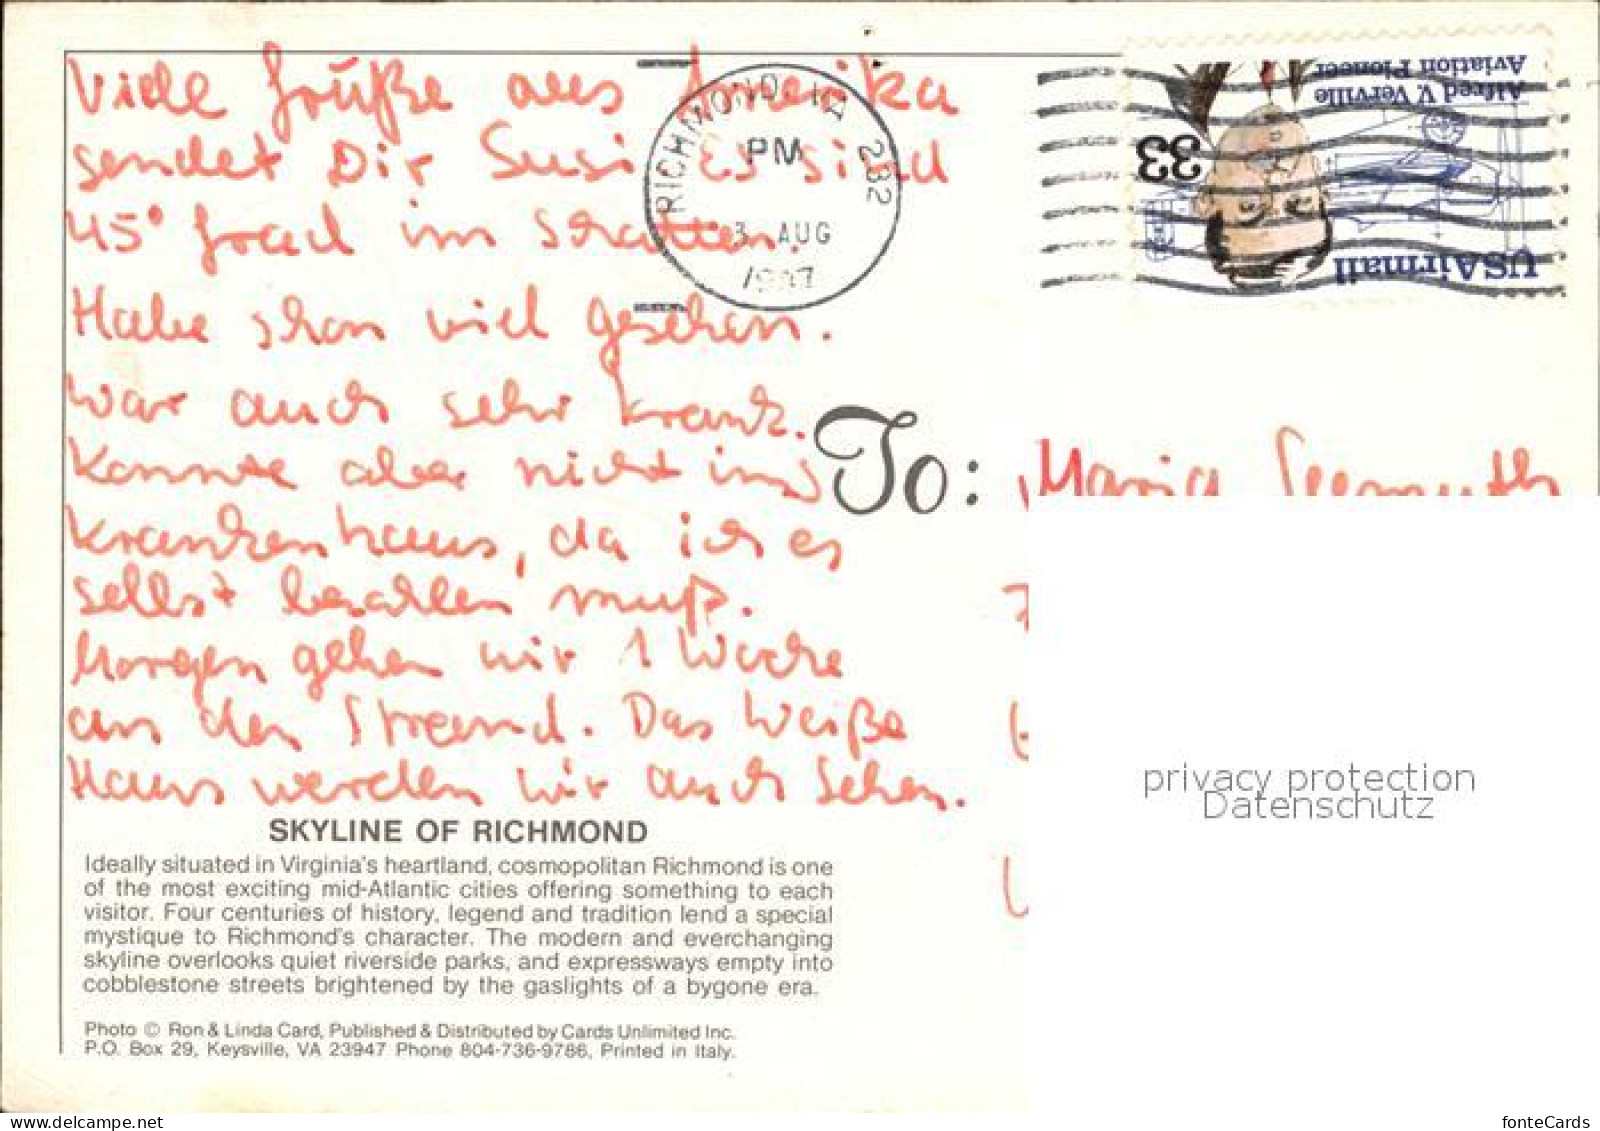 Viele Grüße aus Amerika
sendet Dir Susi Es sind
45° Grad im Schatten!
Habe schon viel gesehen.
War auch sehr krank.
Konnte aber nicht ins
Krankenhaus, da ich es
selbst bezahlen muß.
Morgen gehen wir 1 Woche
an den Strand. Das Weiße
Haus werden wir auch Sehen.
SKYLINE OF RICHMOND
Ideally situated in Virginia's heartland, cosmopolitan Richmond is one
of the most exciting mid-Atlantic cities offering something to each
visitor. Four centuries of history, legend and tradition lend a special
mystique to Richmond's character. The modern and everchanging
skyline overlooks quiet riverside parks, and expressways empty into
cobblestone streets brightened by the gaslights of a bygone era.
Photo © Ron & Linda Card, Published & Distributed by Cards Unlimited Inc.
P.O. Box 29, Keysville, VA 23947 Phone 804-736-9786, Printed in Italy.
RICHMOND, VA 232
PM
3 AUG
USAirmail
33
Alfred V. Verville
Aviation Pioneer
To:
Maria
privacy protection
Datenschutz
fonteCards